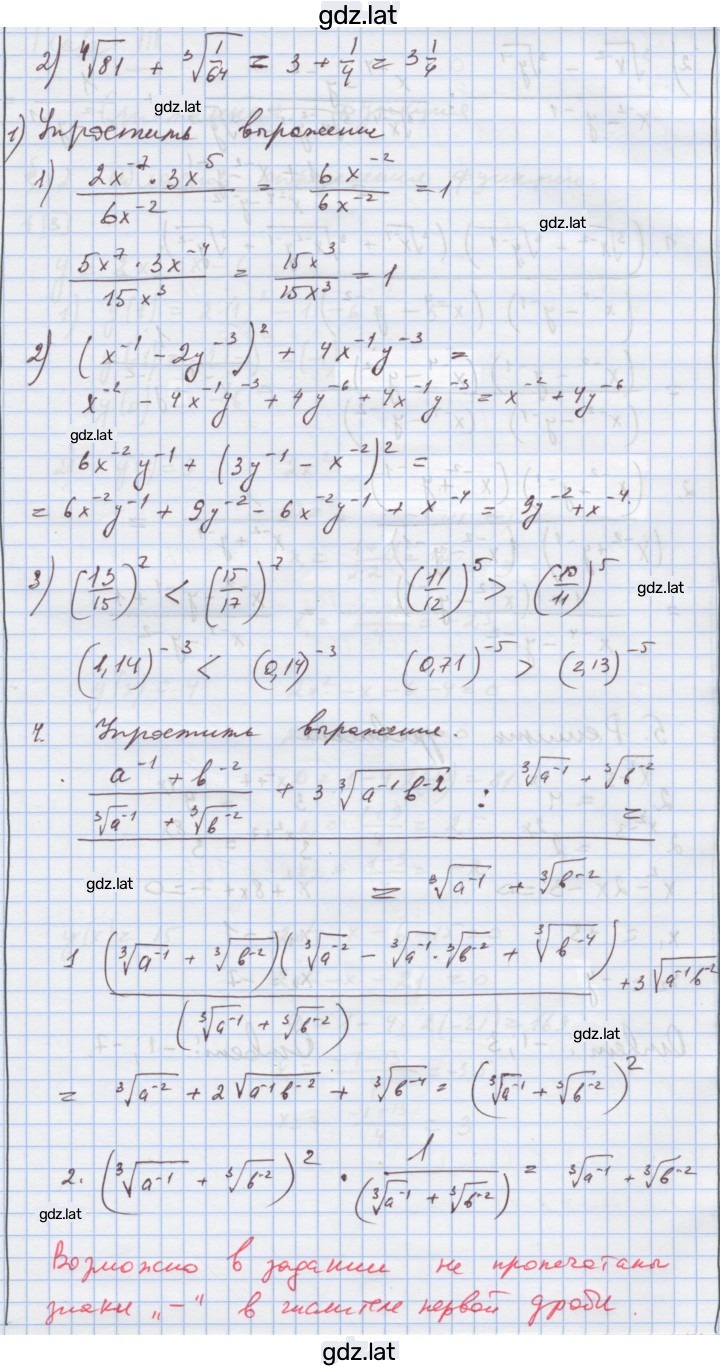 gdz.lat
2) ⁴√81 + ³√(1/64) = 3 + 1/4 = 3 1/4
gdz.lat
1) Упростить выражение
1) (2x⁻⁷ · 3x⁵)/(6x⁻²) = (6x⁻²)/(6x⁻²) = 1
gdz.lat
(5x⁷ · 3x⁻⁴)/(15x³) = (15x³)/(15x³) = 1
2) (x⁻¹ − 2y⁻³)² + 4x⁻¹y⁻³ =
x⁻² − 4x⁻¹y⁻³ + 4y⁻⁶ + 4x⁻¹y⁻³ = x⁻² + 4y⁻⁶
gdz.lat
6x⁻²y⁻¹ + (3y⁻¹ − x⁻²)² =
= 6x⁻²y⁻¹ + 9y⁻² − 6x⁻²y⁻¹ + x⁻⁴ = 9y⁻² + x⁻⁴.
3) (13/15)⁷ < (15/17)⁷ (11/12)⁵ > (10/11)⁵
gdz.lat
(1,14)⁻³ < (0,14)⁻³ (0,71)⁻⁵ > (2,13)⁻⁵
4. Упростить выражение.
(a⁻¹ + b⁻²)/(³√a⁻¹ + ³√b⁻²) + 3 ³√(a⁻¹b⁻²) : ³√a⁻¹ + ³√b⁻² =
gdz.lat
= ³√a⁻¹ + ³√b⁻²
1 ((³√a⁻¹ + ³√b⁻²)(³√a⁻² − ³√a⁻¹ · ³√b⁻² + ³√b⁻⁴))/(³√a⁻¹ + ³√b⁻²) + 3√(a⁻¹b⁻²)
gdz.lat
= ³√a⁻² + 2√(a⁻¹b⁻²) + ³√b⁻⁴ = (³√a⁻¹ + ³√b⁻²)²
2. (³√a⁻¹ + ³√b⁻²)² · 1/(³√a⁻¹ + ³√b⁻²) = ³√a⁻¹ + ³√b⁻²
gdz.lat
Возможно в задании не пропечатаны
знаки „−“ в числителе первой дроби.
gdz.lat